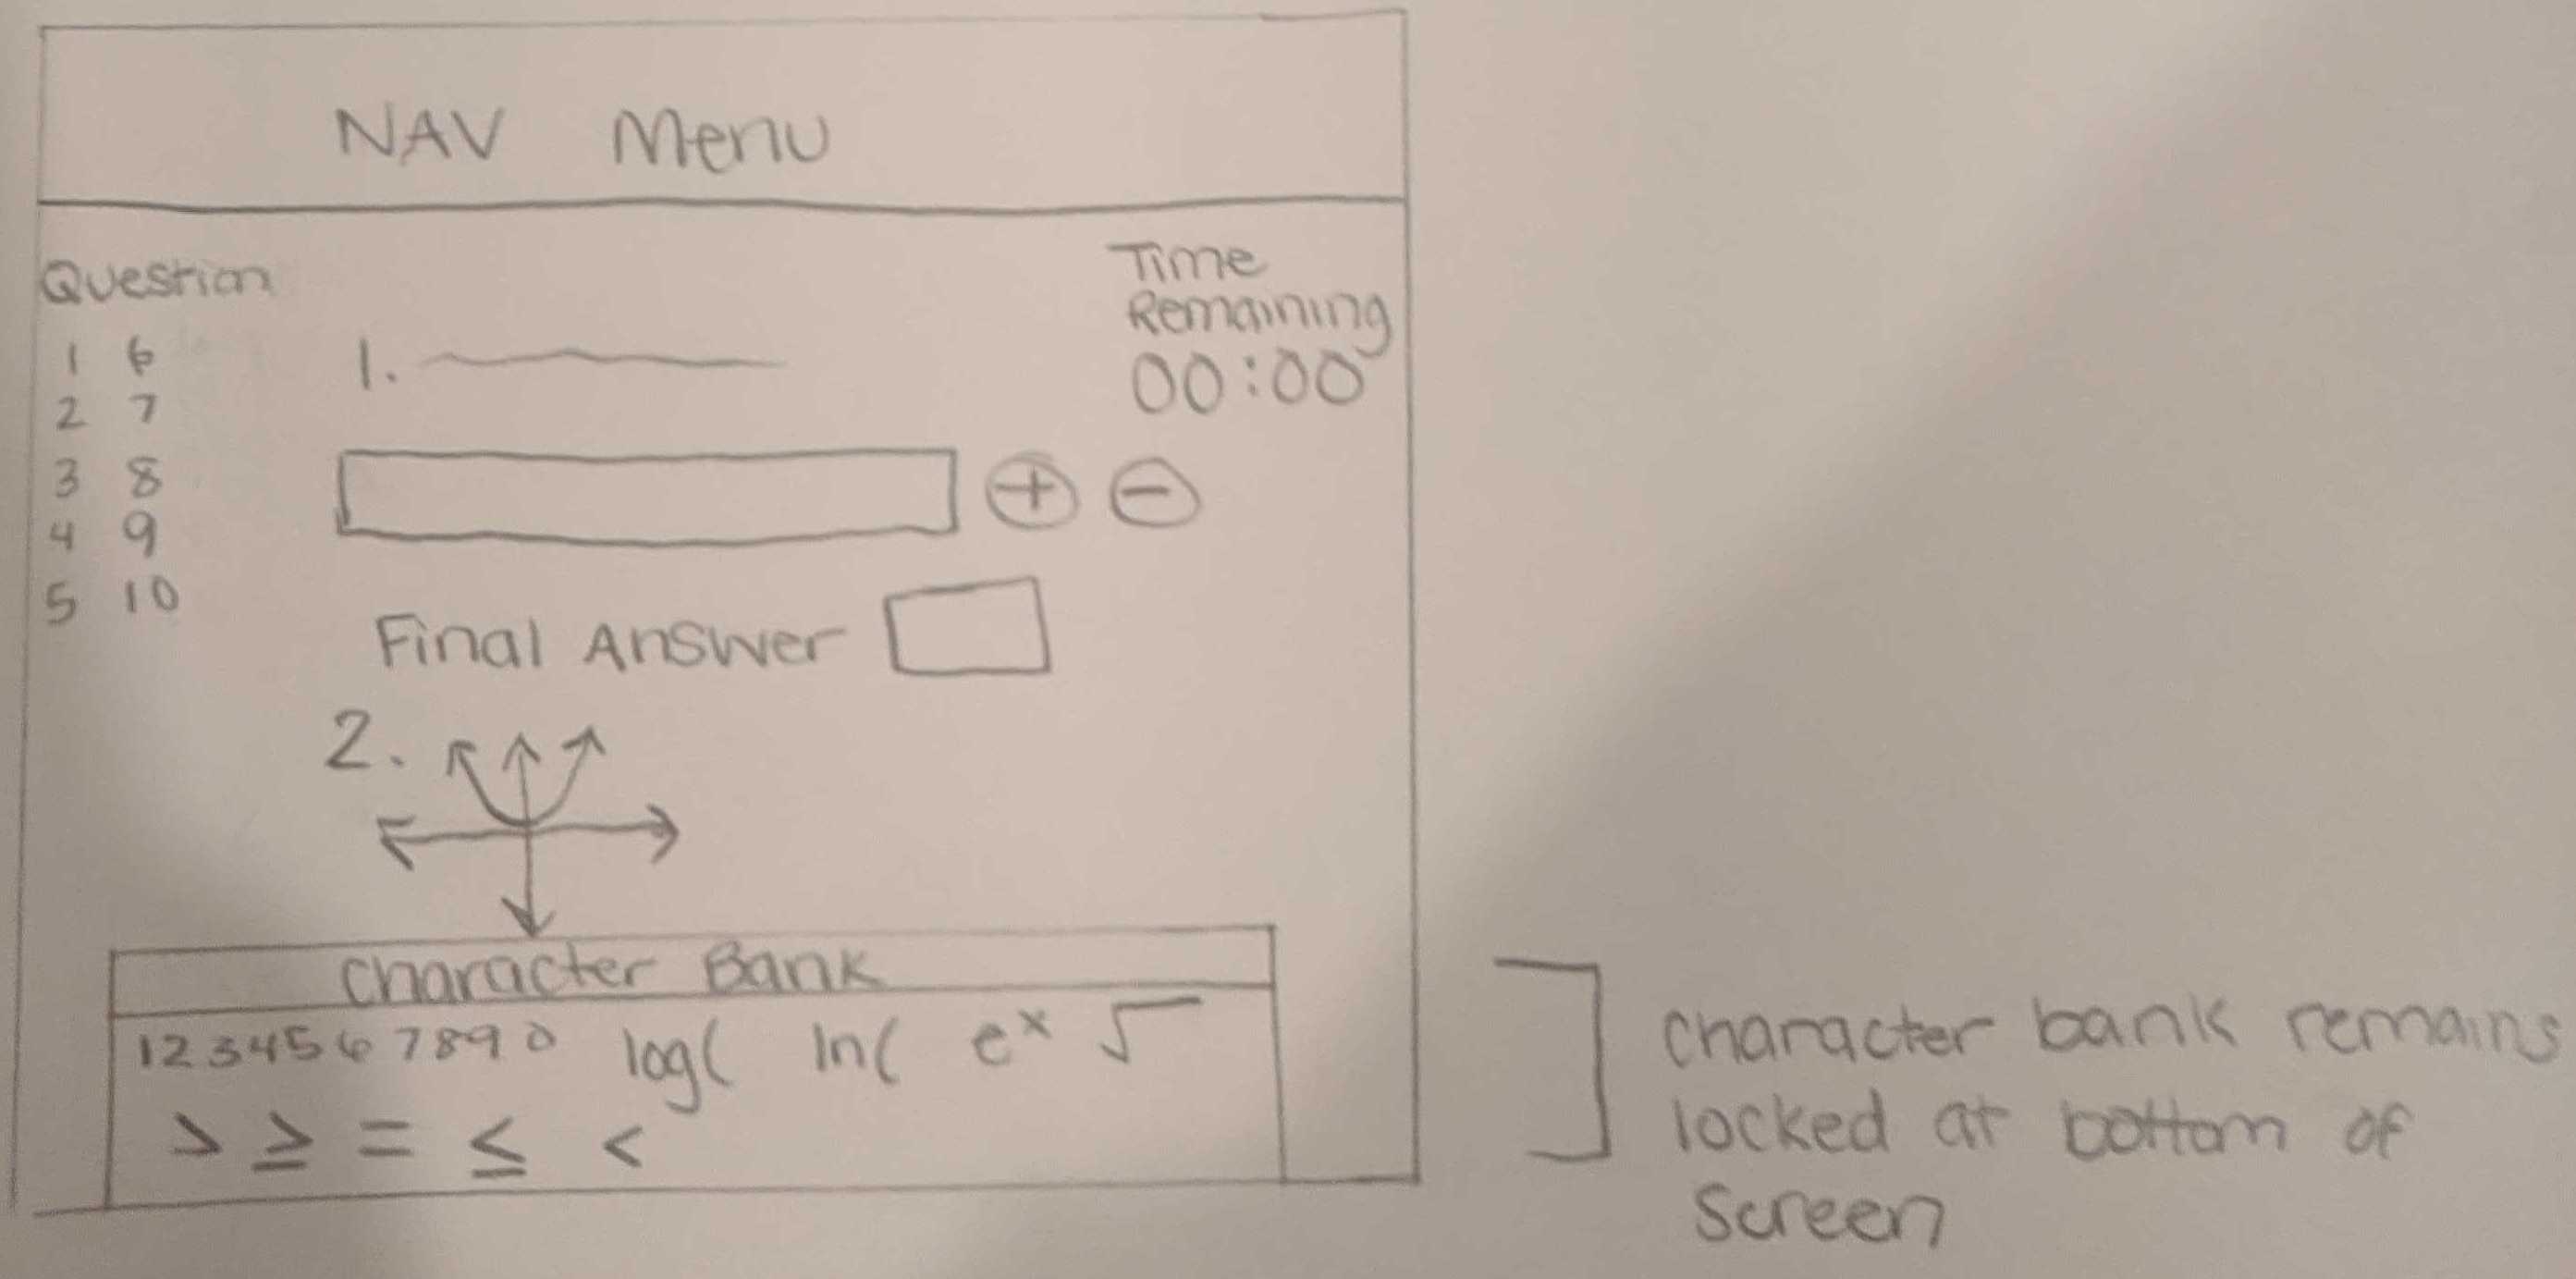 NAV Menu
Question
1 6
2 7
3 8
4 9
5 10
1.
Time
Remaining
00:00
+ -
Final Answer
2.
Character Bank
1 2 3 4 5 6 7 8 9 0 log( ln( eˣ √
> ≥ = ≤ <
Character bank remains
locked at bottom of
screen